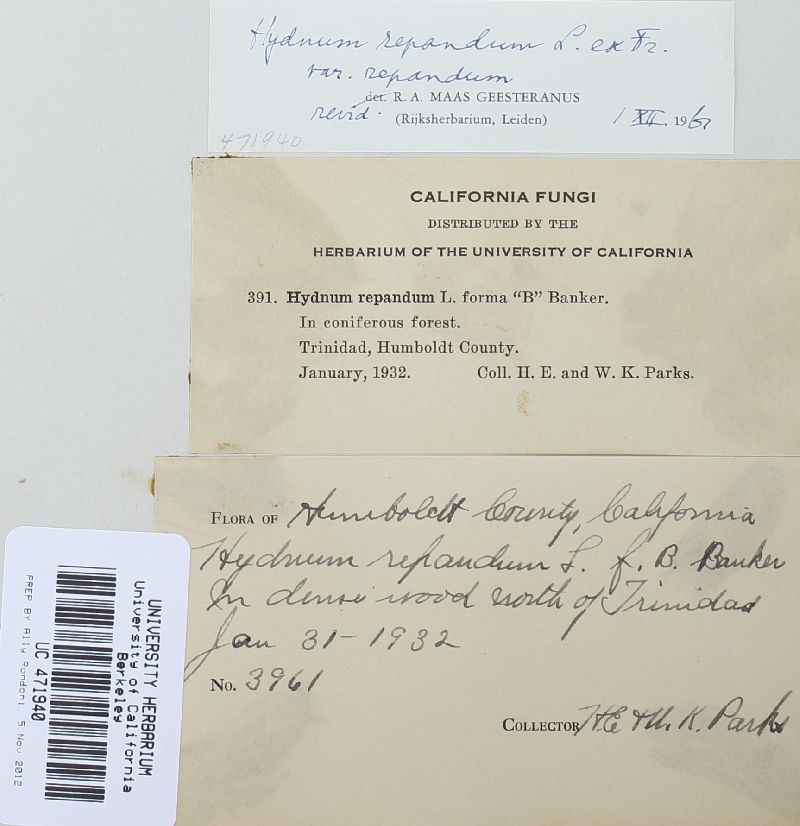 Hydnum repandum L. ex Fr.
var. repandum
det. R. A. MAAS GEESTERANUS
revid.
(Rijksherbarium, Leiden) 1 XII 1961
471940
CALIFORNIA FUNGI
DISTRIBUTED BY THE
HERBARIUM OF THE UNIVERSITY OF CALIFORNIA
391. Hydnum repandum L. forma “B” Banker.
In coniferous forest.
Trinidad, Humboldt County.
January, 1932. Coll. H. E. and W. K. Parks.
FLORA OF Humboldt County, California
Hydnum repandum L. f. B. Banker
In dense wood north of Trinidad
Jan 31-1932
No. 3961
COLLECTOR H E & W. K. Parks
UNIVERSITY HERBARIUM
University of California
Berkeley
UC 471940
PREP BY Ally Rondoni. 5 Nov 2012